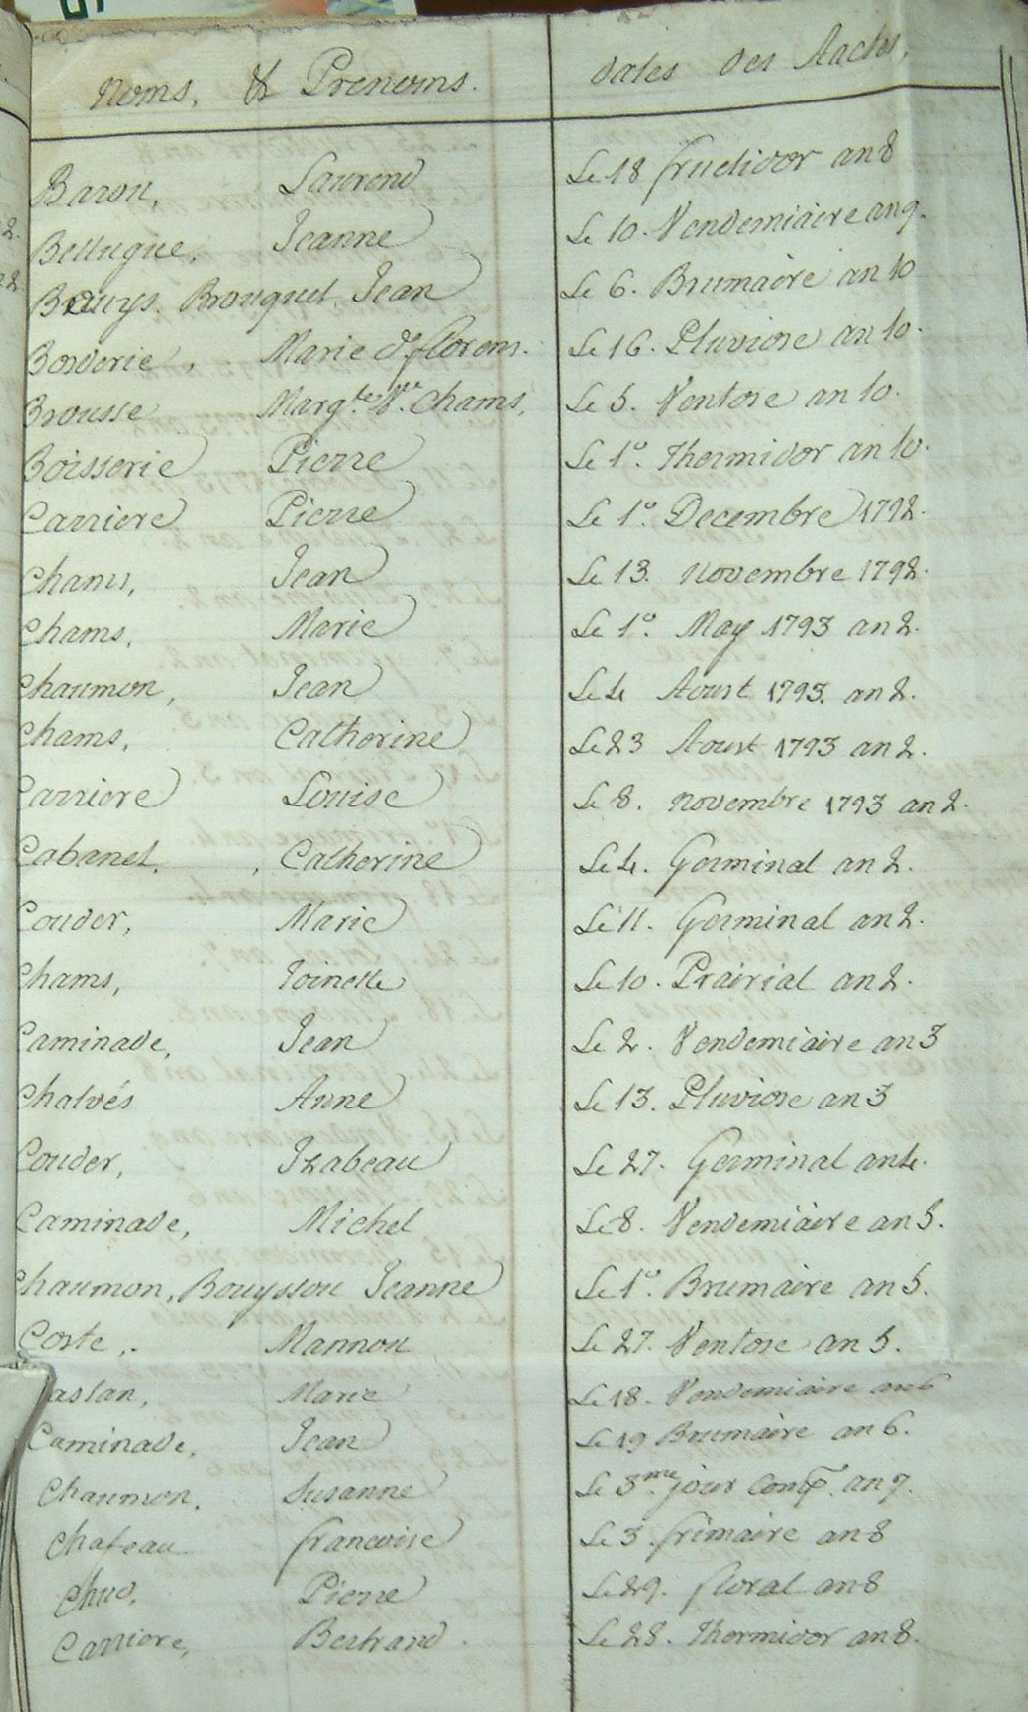 Noms, & Prenoms. dates des Aactes.
Baron, Laurend Le 18 fructidor an 8
Bellugue, Jeanne Le 10. Vendemiaire an 9.
Bouys. Brouquet Jean Le 6. Brumaire an 10
Borderie, Marie de florens. Le 16. Pluviose an 10.
Brousse Margte. Ve. Chams, Le 5. Ventose an 10.
Boisserie Pierre Le 1o. Thermidor an 10.
Carriere Pierre Le 1o. Decembre 1792.
Chams, Jean Le 13. Novembre 1792.
Chams, Marie Le 1o. May 1793 an 2.
Chaumon, Jean Le 4 Aoust 1793. an 2.
Chams, Catherine Le 23 Aoust 1793 an 2.
Carriere Louise Le 8. Novembre 1793 an 2.
Cabanel, Catherine Le 4. Germinal an 2.
Couder, Marie Le 11. Germinal an 2.
Chams, Toinette Le 10. Prairial an 2.
Caminade, Jean Le 2. Vendemiaire an 3
Chalvés Anne Le 13. Pluviose an 3
Couder, Izabeau Le 27. Germinal an 4.
Caminade, Michel Le 8. Vendemiaire an 5.
Chaumon, Bouyssou Jeanne Le 1o. Brumaire an 5.
Coste, Mannon Le 27. Ventose an 5.
astan, Marie Le 18. Vendemiaire an 6
Caminade, Jean Le 19 Brumaire an 6.
Chaumon, Susanne Le 3me. jour Comp. an 7.
Chateau francoise Le 3. frimaire an 8
Pierre Le 29. floral an 8
Carriere, Bertrand. Le 28. Thermidor an 8.